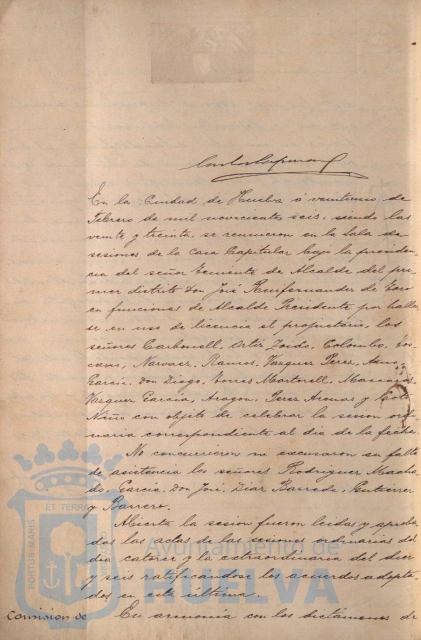 En la Ciudad de Huelva á veintiuno de
Febrero de mil novecientos seis, siendo las
veinte y treinta, se reunieron en la Sala de
sesiones de la Casa Capitular bajo la presiden-
cia del señor Teniente de Alcalde del pri-
mer distrito Don José
en funciones de Alcalde Presidente por hallar
se en uso de licencia el propietario, los
señores Carbonell, Ortiz Zoido, Colombo,
Narvaez, Ramos, Vazquez Perez,
Garcia, Don Diego, Torres Martorell,
Vazquez Garcia, Aragon, Perez Armas y
Niño con objeto de celebrar la sesion ordi
naria correspondiente al dia de la fecha.
No concurrieron ni excusaron su falta
de asistencia los señores Rodriguez Macha
do, Garcia Don José, Diaz Barreda, Gutierrez
y Barrero.
Abierta la sesion fueron leidas y aproba
das las actas de las sesiones ordinarias del
dia catorce y la extraordinaria del diez
y seis ratificandose los acuerdos adopta
dos en esta última.
Comision de
En armonía con los dictámenes de
PORTUS MARIS
ET TERRAE
Ayuntamiento de
HUELVA